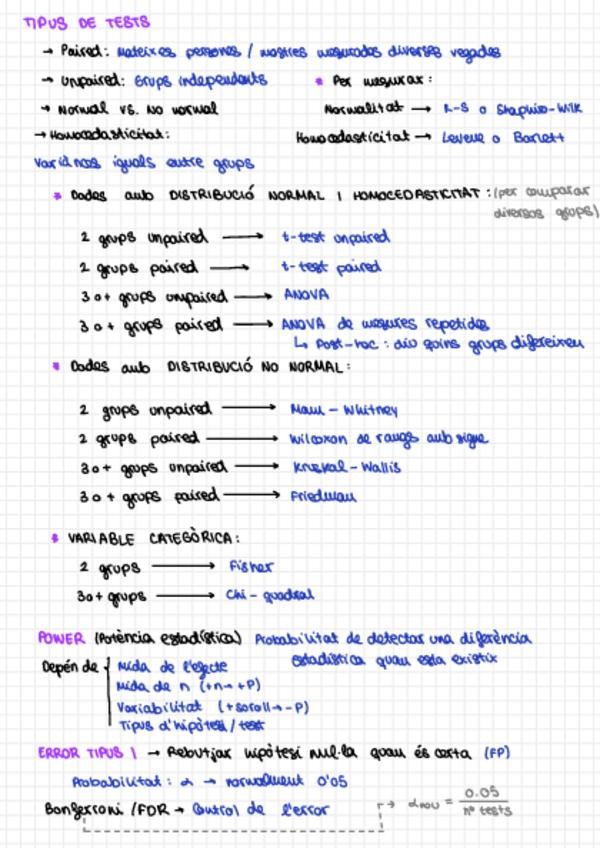 TIPUS DE TESTS
→ Paired: Mateixes persones / mostres mesurades diverses vegades
→ Unpaired: Grups independents * Per mesurar:
→ Normal vs. No normal Normalitat → K-S o Shapiro-Wilk
→ Homocedasticitat: Homocedasticitat → Levene o Barlett
Variàncies iguals entre grups
* Dades amb DISTRIBUCIÓ NORMAL I HOMOCEDASTICITAT: (per comparar
diversos grups)
2 grups unpaired → t-test unpaired
2 grups paired → t-test paired
3 o + grups unpaired → ANOVA
3 o + grups paired → ANOVA de mesures repetides
↳ Post-hoc: diu quins grups difereixen
* Dades amb DISTRIBUCIÓ NO NORMAL:
2 grups unpaired → Mann-Whitney
2 grups paired → Wilcoxon de rangs amb signe
3 o + grups unpaired → Kruskal-Wallis
3 o + grups paired → Friedman
* VARIABLE CATEGÒRICA:
2 grups → Fisher
3 o + grups → Chi-quadrat
POWER (Potència estadística) Probabilitat de detectar una diferència
estadística quan esta existix
Depén de { Mida de l'efecte
Mida de n (+n → +P)
Variabilitat (+soroll → -P)
Tipus d'hipòtesi / test
ERROR TIPUS I → Rebutjar hipòtesi nul·la quan és certa (FP)
Probabilitat: α → normalment 0'05
Bonferroni / FDR → Control de l'error → α nou = 0.05 / nº tests